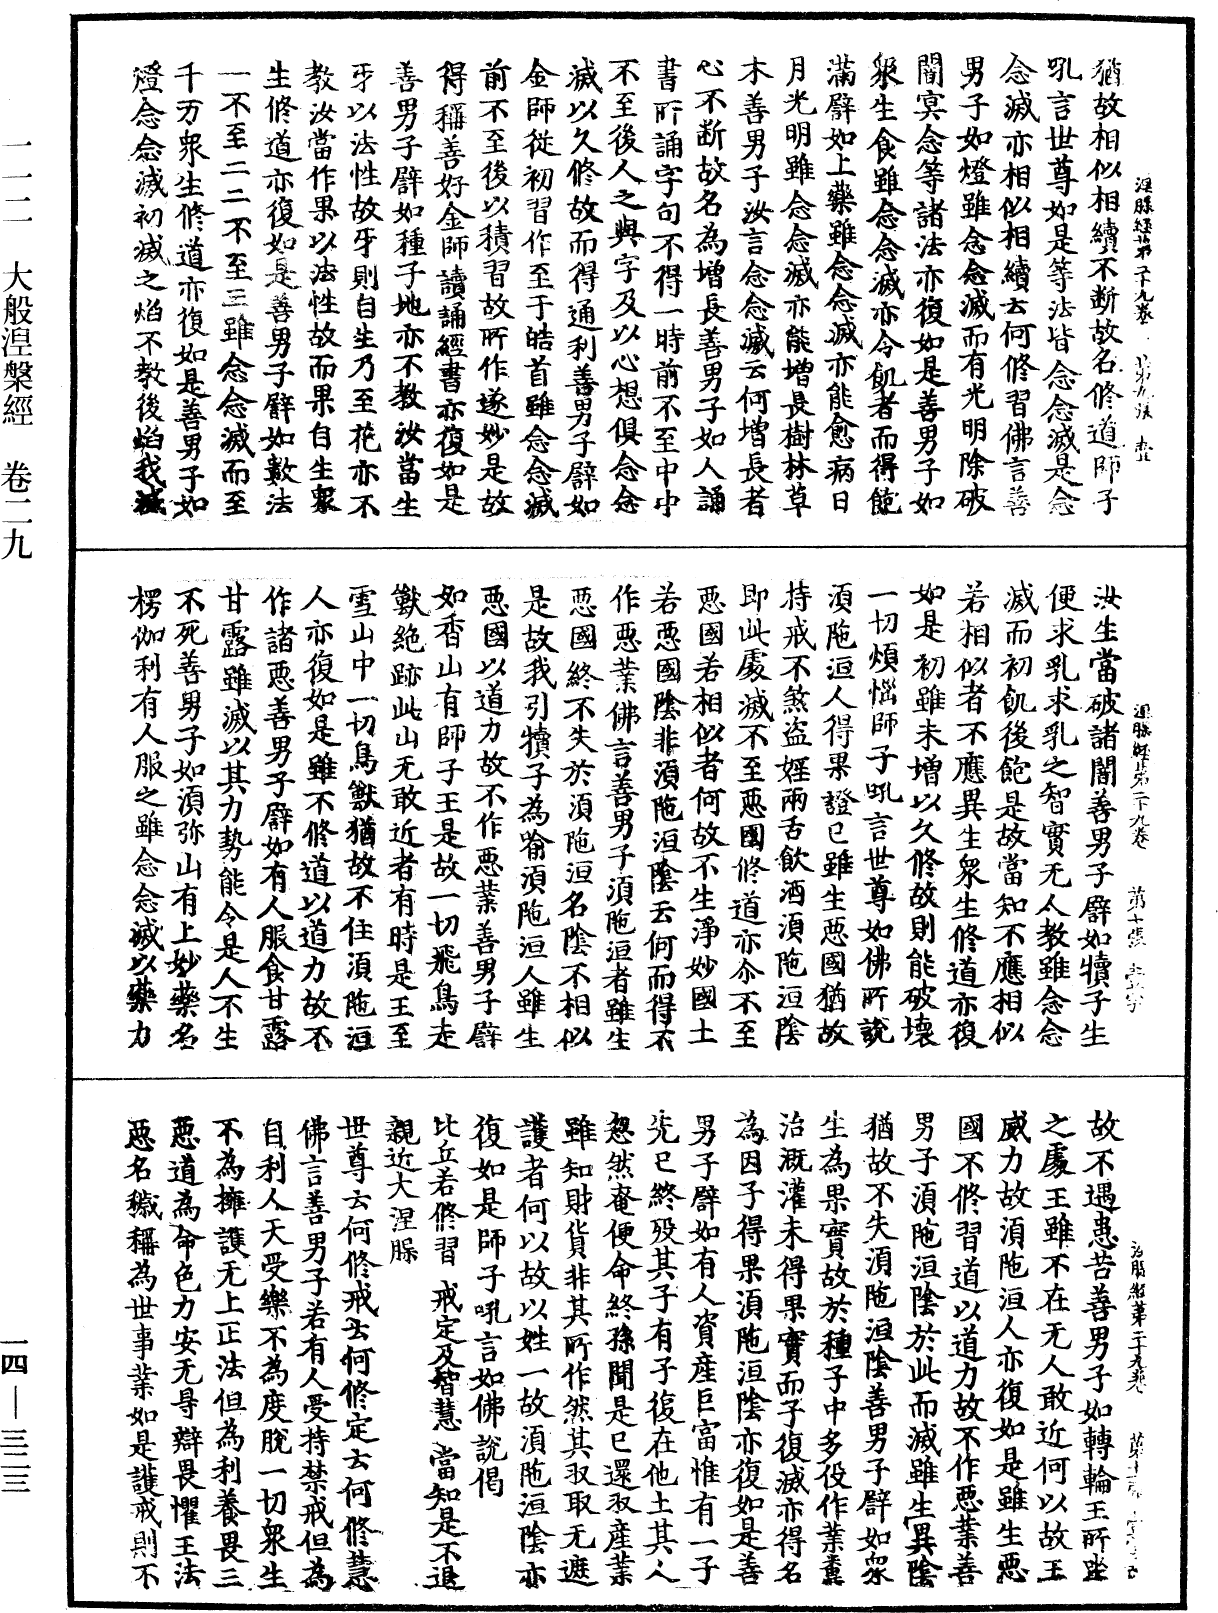 一一二　大般涅槃經　卷二九
一四—三二三
猶故相似相續不斷故名修道師子
吼言世尊如是等法皆念念滅是念
念滅亦相似相續云何修習佛言善
男子如燈雖念念滅而有光明除破
闇冥念等諸法亦復如是善男子如
衆生食雖念念滅亦令飢者而得飽
滿譬如上藥雖念念滅亦能愈病日
月光明雖念念滅亦能增長樹林草
木善男子汝言念念滅云何增長者
心不斷故名為增長善男子如人誦
書所誦字句不得一時前不至中中
不至後人之與字及以心想俱念念
滅以久修故而得通利善男子譬如
金師從初習作至于皓首雖念念滅
前不至後以積習故所作遂妙是故
得稱善好金師讀誦經書亦復如是
善男子譬如種子地亦不教汝當生
牙以法性故牙則自生乃至花亦不
教汝當作果以法性故而果自生衆
生修道亦復如是善男子譬如數法
一不至二二不至三雖念念滅而至
千万衆生修道亦復如是善男子如
燈念念滅初滅之焰不教後焰我滅
汝生當破諸闇善男子譬如犢子生
便求乳求乳之智實无人教雖念念
滅而初飢後飽是故當知不應相似
若相似者不應異生衆生修道亦復
如是初雖未增以久修故則能破壞
一切煩惱師子吼言世尊如佛所說
須陁洹人得果證已雖生惡國猶故
持戒不煞盜婬兩舌飲酒須陁洹陰
即此處滅不至惡國修道亦尒不至
惡國若相似者何故不生淨妙國土
若惡國陰非須陁洹陰云何而得不
作惡業佛言善男子須陁洹者雖生
惡國終不失於須陁洹名陰不相似
是故我引犢子為喻須陁洹人雖生
惡國以道力故不作惡業善男子譬
如香山有師子王是故一切飛鳥走
獸絶跡此山无敢近者有時是王至
雪山中一切鳥獸猶故不住須陁洹
人亦復如是雖不修道以道力故不
作諸惡善男子譬如有人服食甘露
甘露雖滅以其力勢能令是人不生
不死善男子如須弥山有上妙藥名
楞伽利有人服之雖念念滅以藥力
故不遇患苦善男子如轉輪王所坐
之處王雖不在无人敢近何以故王
威力故須陁洹人亦復如是雖生惡
國不修習道以道力故不作惡業善
男子須陁洹陰於此而滅雖生異陰
猶故不失須陁洹陰善男子譬如衆
生為果實故於種子中多役作業糞
治溉灌未得果實而子復滅亦得名
為因子得果須陁洹陰亦復如是善
男子譬如有人資產巨富惟有一子
先已終歿其子有子復在他土其人
忽然奄便命終孫聞是已還收產業
雖知財貨非其所作然其收取无遮
護者何以故以姓一故須陁洹陰亦
復如是師子吼言如佛說偈
比丘若修習　戒定及智慧　當知是不退
親近大涅槃
世尊云何修戒云何修定云何修慧
佛言善男子若有人受持禁戒但為
自利人天受樂不為度脫一切衆生
不為擁護无上正法但為利養畏三
惡道為命色力安无㝵辯畏懼王法
惡名穢稱為世事業如是護戒則不